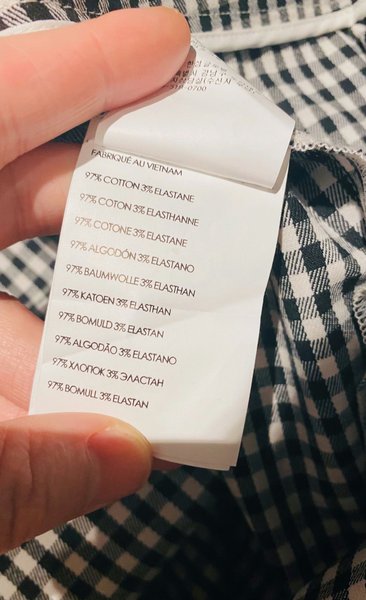 518-0700
FABRIQUÉ AU VIETNAM
97% COTTON 3% ELASTANE
97% COTON 3% ELASTHANNE
97% COTONE 3% ELASTANE
97% ALGODÓN 3% ELASTANO
97% BAUMWOLLE 3% ELASTHAN
97% KATOEN 3% ELASTHAN
97% BOMULD 3% ELASTAN
97% ALGODÃO 3% ELASTANO
97% ХЛОПОК 3% ЭЛАСТАН
97% BOMULL 3% ELASTAN